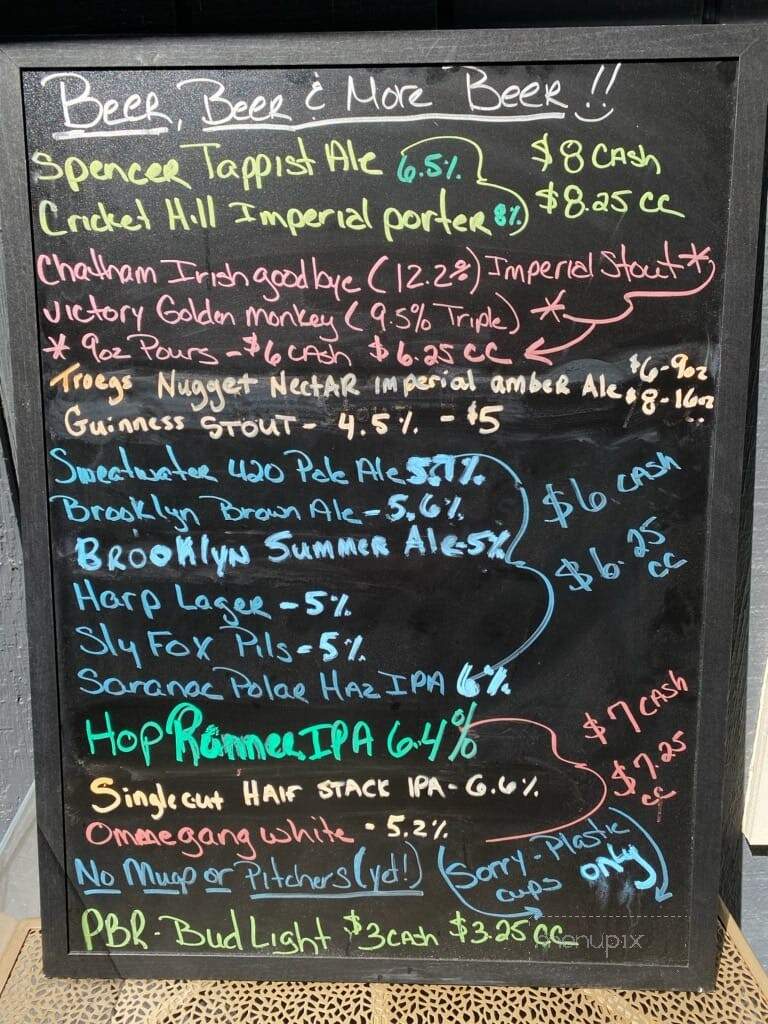 Beer, Beer & More Beer!!
Spencer Tappist Ale 6.5% $8 cash
Cricket Hill Imperial porter 8% $8.25 cc
Chatham Irish goodbye (12.2%) Imperial Stout *
Victory Golden monkey (9.5% Triple) *
* 9oz Pours - $6 cash $6.25 cc
Troegs Nugget Nectar imperial amber Ale $6-9oz
$8-16oz
Guinness Stout - 4.5% - $5
Sweatwater 420 Pale Ale 5.7%
Brooklyn Brown Ale - 5.6%
Brooklyn Summer Ale-5%
$6 cash
$6.25 cc
Harp Lager - 5%
Sly Fox Pils - 5%
Saranac Polar Haz IPA 6%
Hop Runner IPA 6.4%
$7 cash
$7.25 cc
Singlecut Half Stack IPA - 6.6%
Ommegang white - 5.2%
No Mugs or Pitchers (yet!)
(Sorry - Plastic cups only)
PBR - Bud Light $3 cash $3.25 cc
menupix